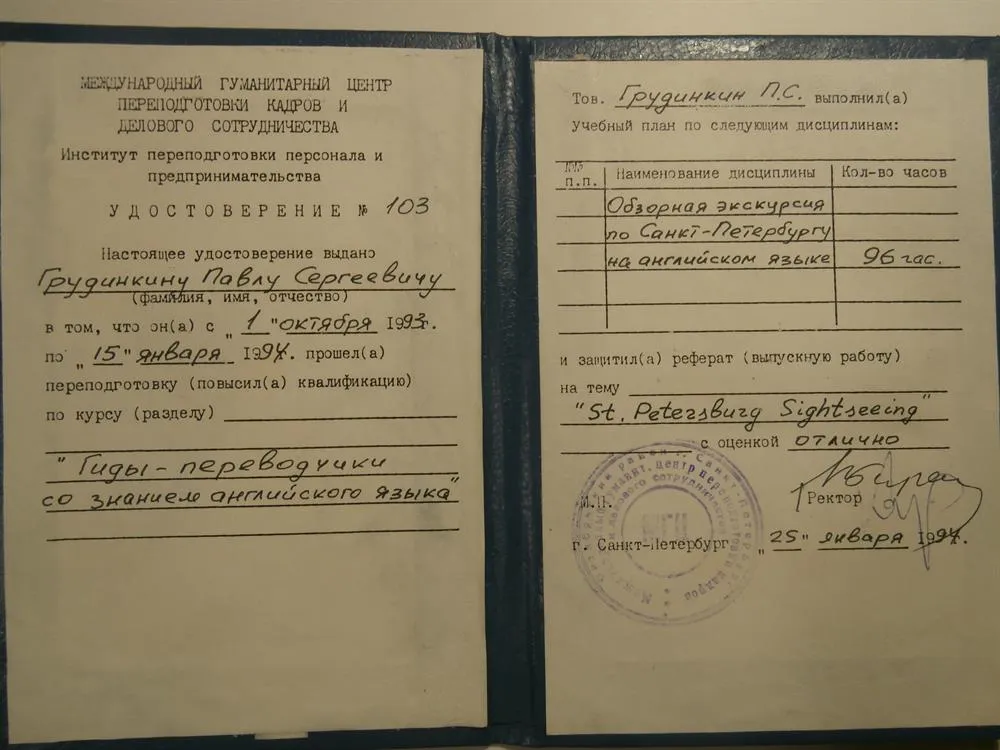 МЕЖДУНАРОДНЫЙ ГУМАНИТАРНЫЙ ЦЕНТР
ПЕРЕПОДГОТОВКИ КАДРОВ И
ДЕЛОВОГО СОТРУДНИЧЕСТВА
Институт переподготовки персонала и
предпринимательства
УДОСТОВЕРЕНИЕ № 103
Настоящее удостоверение выдано
Грудинкину Павлу Сергеевичу
(фамилия, имя, отчество)
в том, что он(а) с "1" октября 1993г.
по "15" января 1994. прошел(а)
переподготовку (повысил(а) квалификацию)
по курсу (разделу)
"Гиды-переводчики
со знанием английского языка"
Тов. Грудинкин П.С. выполнил(а)
Учебный план по следующим дисциплинам:
№№ п.п. Наименование дисциплины Кол-во часов
Обзорная экскурсия
по Санкт-Петербургу
на английском языке 96 час.
и защитил(а) реферат (выпускную работу)
на тему
"St. Petersburg Sightseeing"
с оценкой отлично
М.П. Ректор
г. Санкт-Петербург "25" января 1994.